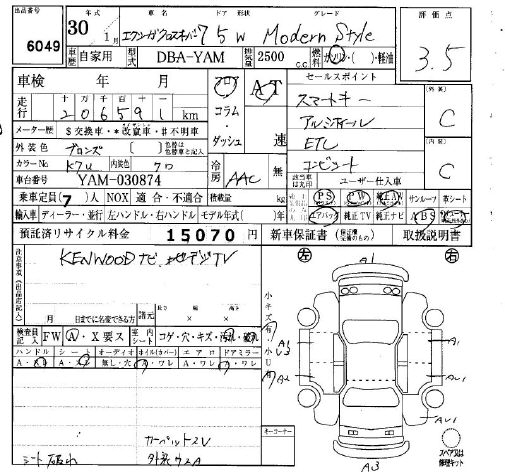 出品番号 年式 車名 ドア 形状 グレード 評価点
6049 30年 1月 5 W Modern Style 3.5
車歴 自家用 型式 DBA-YAM 排気量 2500 c.c. 燃料 ガソリン・( )・軽油
車検 年 月 フロア AT セールスポイント 外装 C
走行 十万千百十一 206591 km コラム・ダッシュ 速 スマートキー
メーター歴 $交換車・*改竄車・#不明車 アルミホイール
外装色 ブロンズ ETC 内装 C
カラーNo. K7U 内装色 クロ 冷房 AAC 無
車台番号 YAM-030874 ユーザー仕入車
乗車定員(7)人 NOX 適合・不適合 積載量 kg PS PW 純正AW サンルーフ 革シート
輸入車 ディーラー・並行 左ハンドル・右ハンドル モデル年式( ) エアバック 純正TV 純正ナビ ABS
預託済リサイクル料金 15070 円 新車保証書 取扱説明書
注意事項 KENWOODナビ、地デジTV
左 右
A1
月 日までに名変できる方 諸元 長さ 幅 高さ × ×
検査員記入 FW A・X要ス 室内シート コゲ・穴・キズ・汚れ・破れ
ハンドル シート オーディオ ホイル(カバー) エアロ ドアミラー
無し・穴 A・ワレ A・ワレ A・ワレ
小キズ有
小U有
A1
U3
A2
A1
AU1
AU1
A3
キーコーナー
カーペットスV
シート破れ
スペア又は修理キット